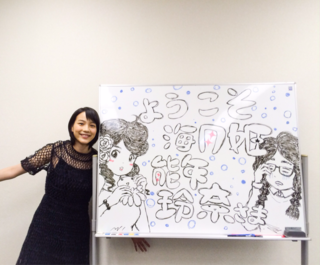 ようこそ
海月姫
能年
玲奈